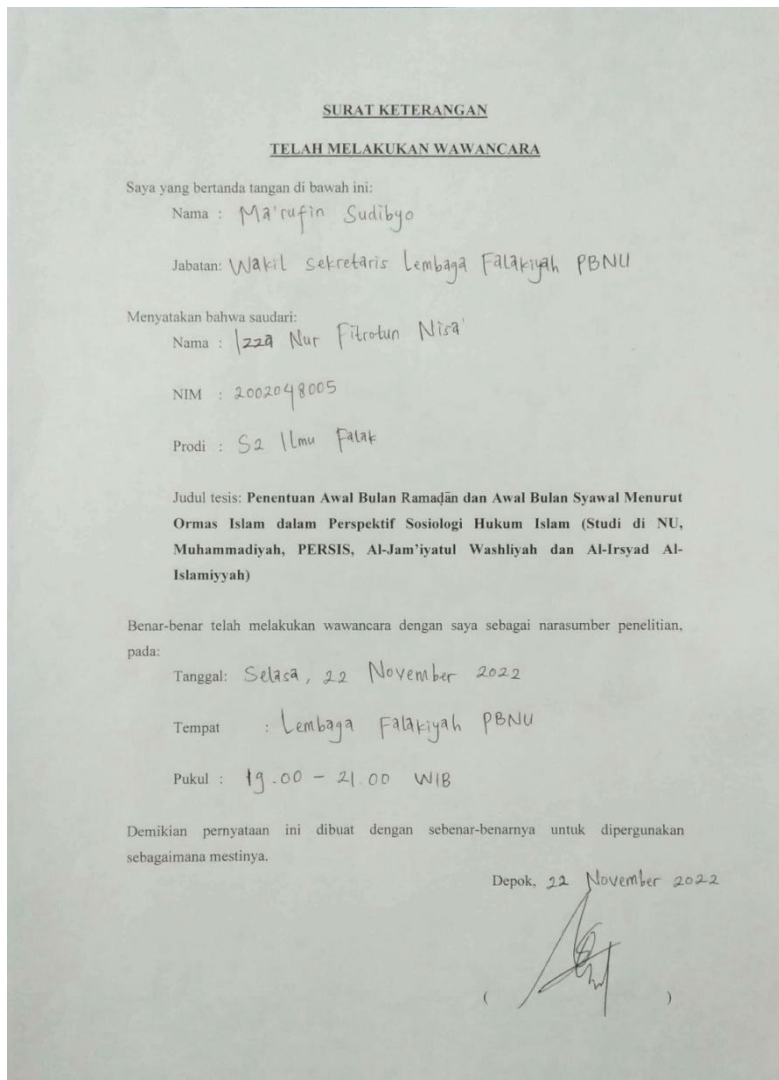 SURAT KETERANGAN
TELAH MELAKUKAN WAWANCARA
Saya yang bertanda tangan di bawah ini:
Nama : Ma'rufin Sudibyo
Jabatan: Wakil Sekretaris Lembaga Falakiyah PBNU
Menyatakan bahwa saudari:
Nama : Izza Nur Fitrotun Nisa'
NIM : 2002048005
Prodi : S2 Ilmu Falak
Judul tesis: Penentuan Awal Bulan Ramaḍān dan Awal Bulan Syawal Menurut
Ormas Islam dalam Perspektif Sosiologi Hukum Islam (Studi di NU,
Muhammadiyah, PERSIS, Al-Jam'iyatul Washliyah dan Al-Irsyad Al-
Islamiyyah)
Benar-benar telah melakukan wawancara dengan saya sebagai narasumber penelitian,
pada:
Tanggal: Selasa, 22 November 2022
Tempat : Lembaga Falakiyah PBNU
Pukul : 19.00 - 21.00 WIB
Demikian pernyataan ini dibuat dengan sebenar-benarnya untuk dipergunakan
sebagaimana mestinya.
Depok, 22 November 2022
( )